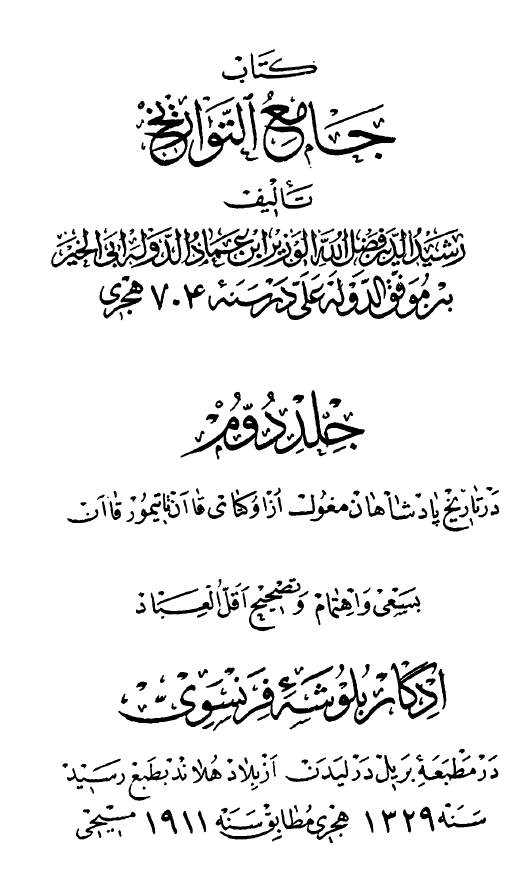 كتاب
جامع التواريخ
تأليف
رشيد الدين فضل الله الوزير ابن عماد الدولة ابى الخير
بن موفق الدولة على در سنه ۷۰۴ هجرى
جلد دوم
در تاريخ پادشاهان مغول از اوكتاى قاآن تا تيمور قاآن
بسعى و اهتمام و تصحيح اقل العباد
ادگار بلوشهٔ فرنسوى
در مطبعهٔ بريل در ليدن از بلاد هلاند بطبع رسيد
سنه ۱۳۲۹ هجرى مطابق سنه ۱۹۱۱ مسيحى